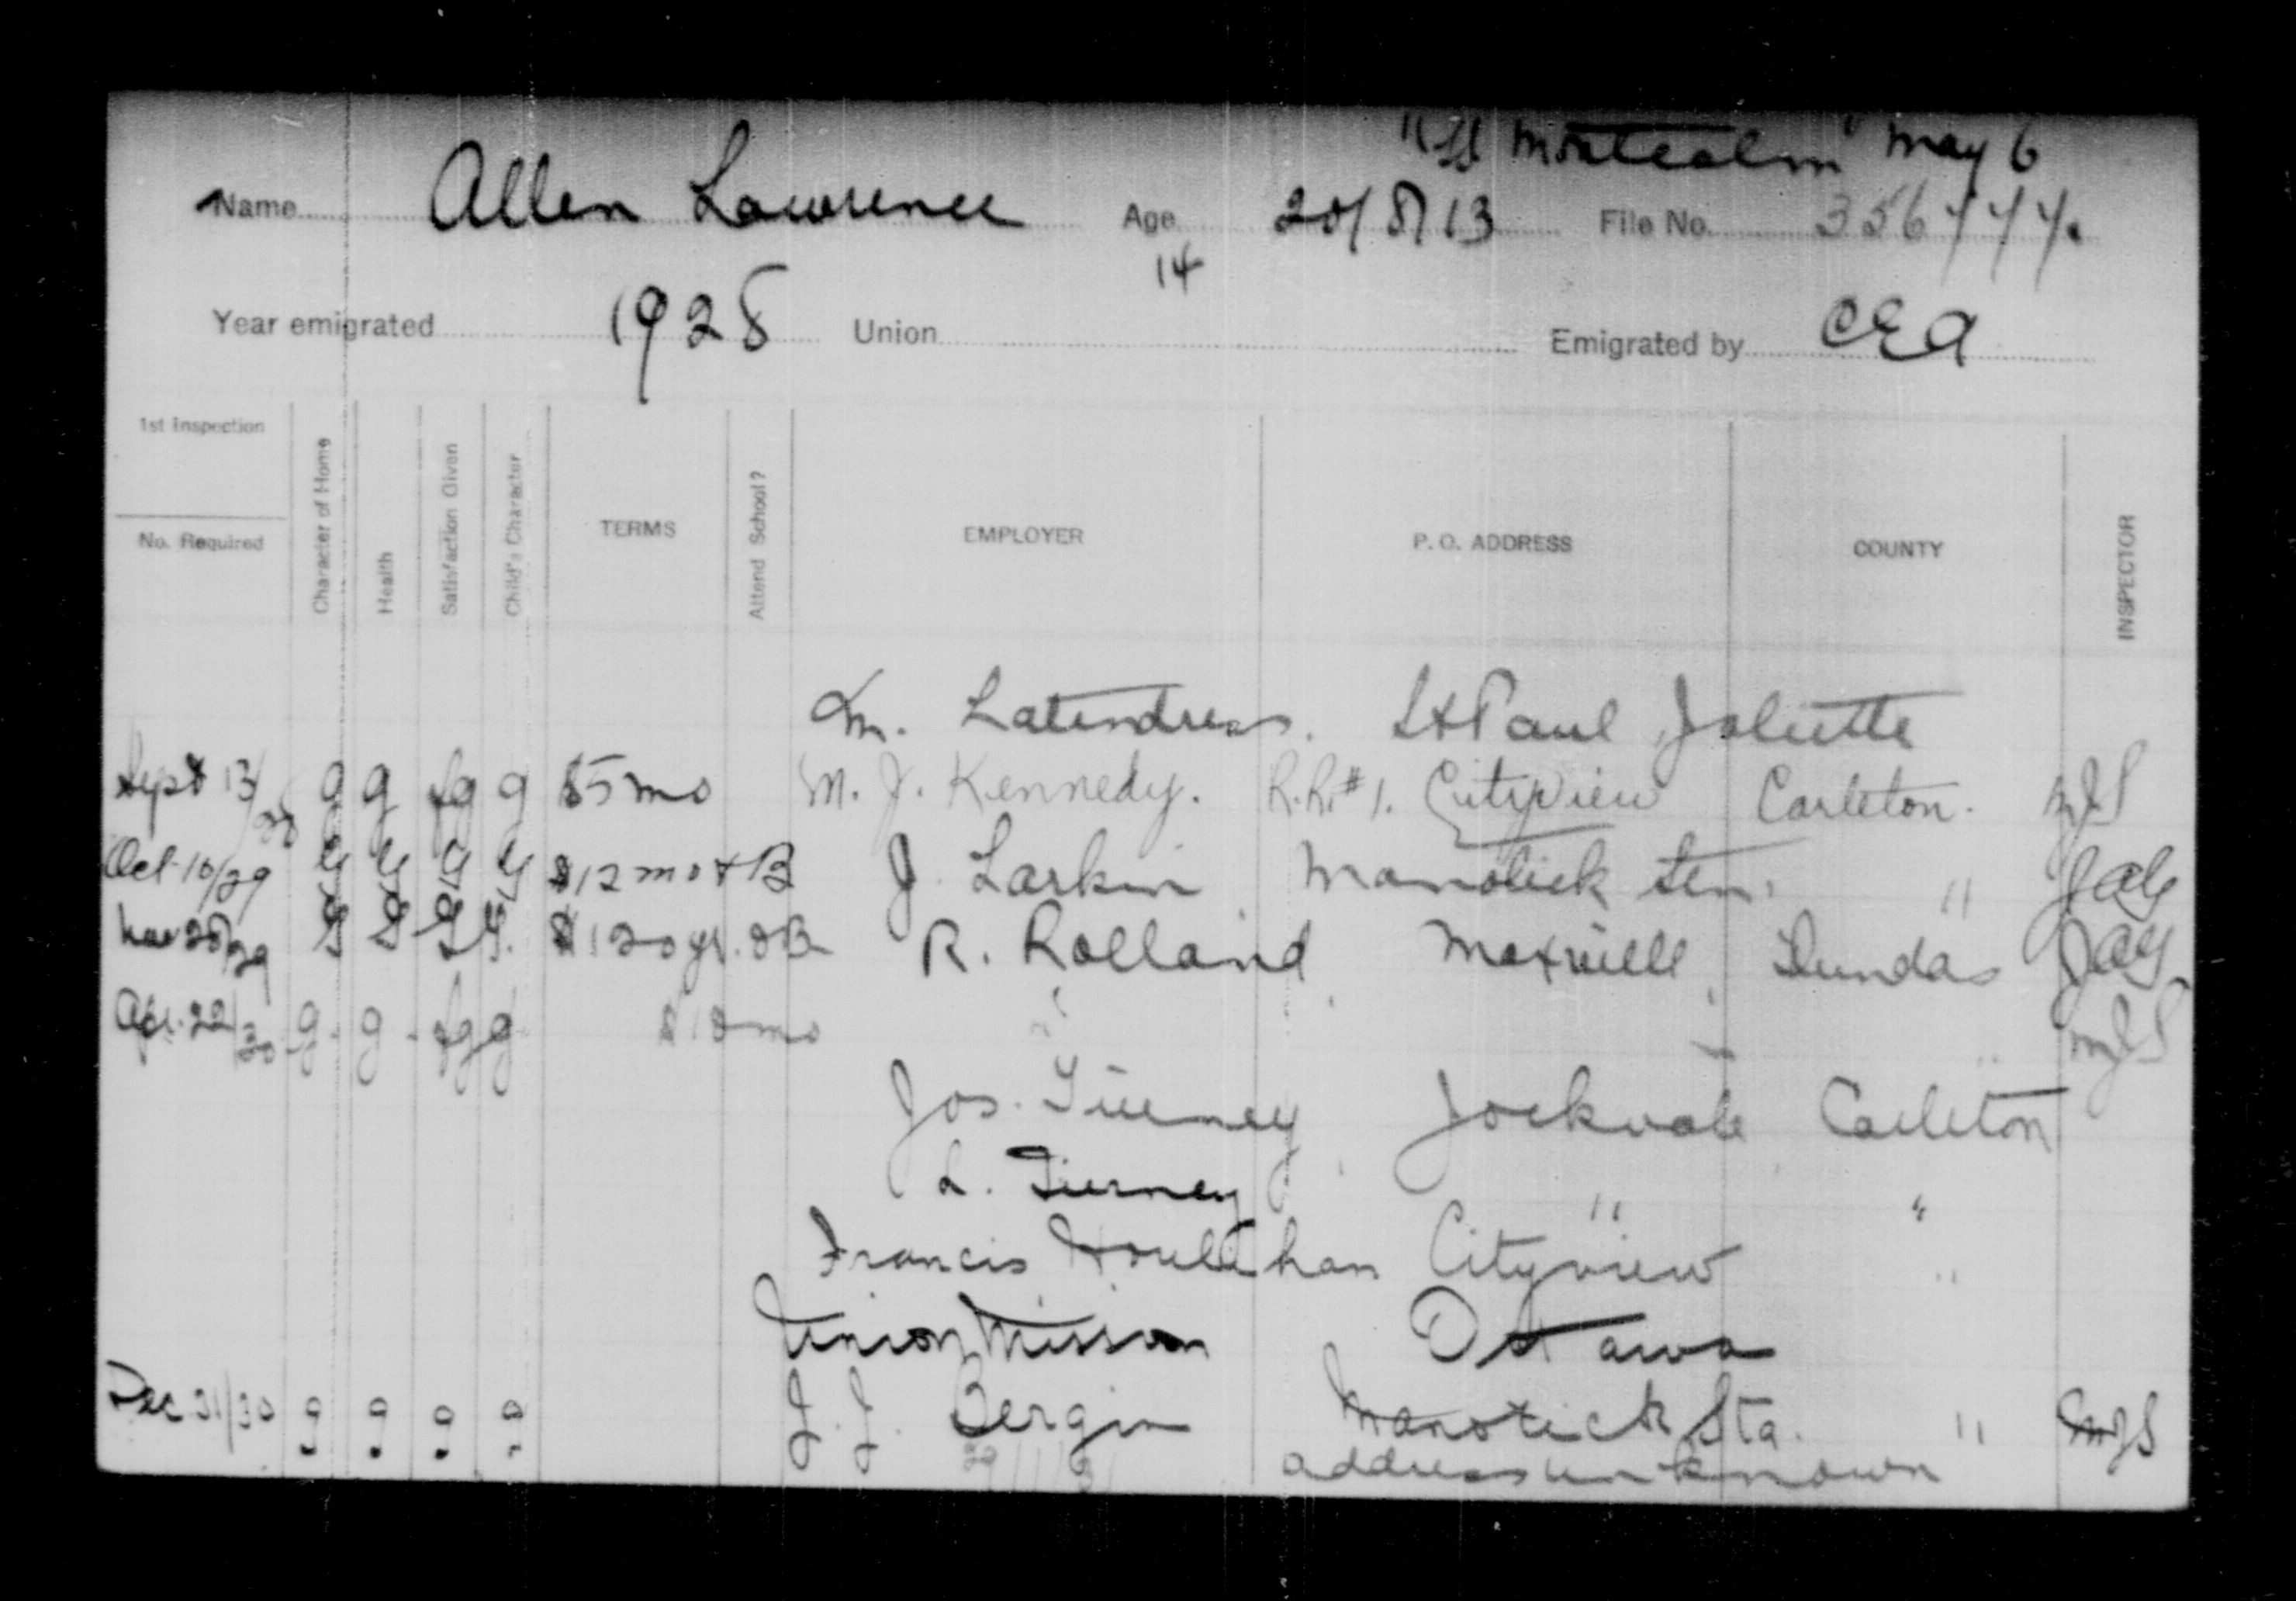 "SS Montcalm" May 6
Name Allen Lawrence Age 20/8/13 File No. 356777.
14
Year emigrated 1928 Union Emigrated by CEA
1st Inspection
No. Required
Character of Home
Health
Satisfaction Given
Child's Character
TERMS
Attend School?
EMPLOYER
P. O. ADDRESS
COUNTY
INSPECTOR
M. Latendress. St Paul Joliette
Sept 13/28 g g fg g $5 mo M. J. Kennedy. R.R. #1. Cityview Carleton. MJS
Oct 10/29 G G G G $12 mo + B J. Larkin Manotick Stn. "
28/29 G G G G. $120 yr. & B R. Rolland Maxville Dundas
Apr. 22/30 g g fg g mo " MJS
Jos. Tierney Jockvale Carleton
L. Tierney " "
Francis Houlahan Cityview "
Union Mission Ottawa
Dec 31/30 g g g g J. J. Bergin Manotick Sta. " MJS
address unknown